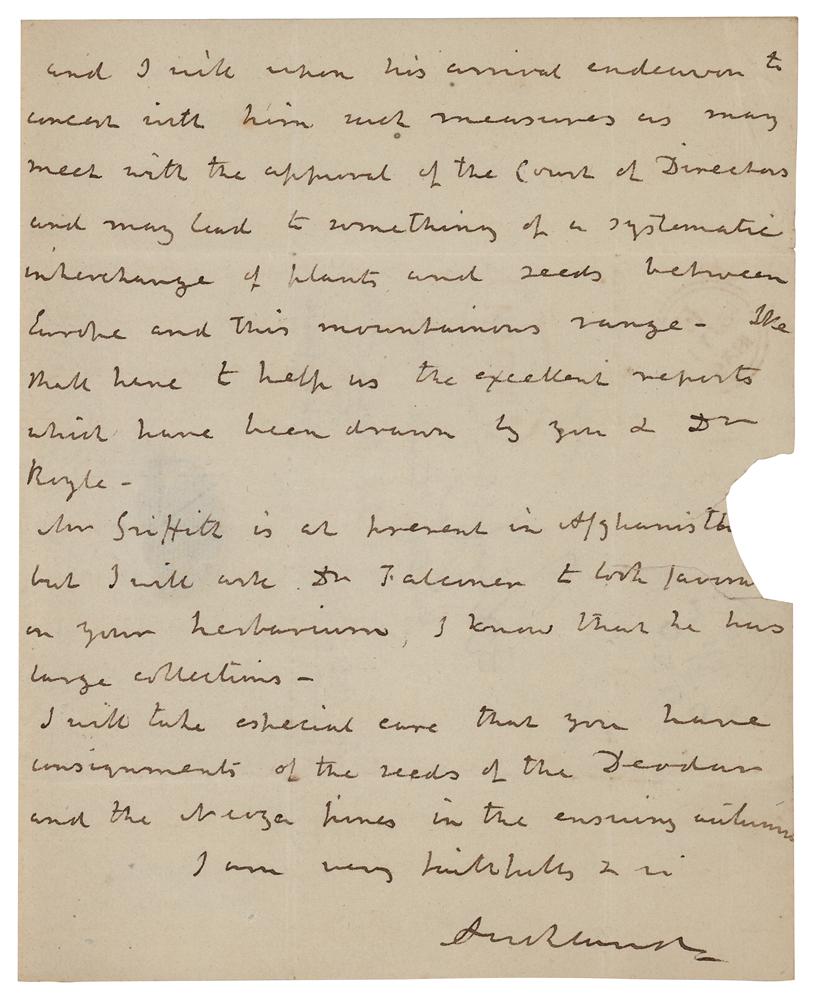 and I will upon his arrival endeavor to
concert with him such measures as may
meet with the approval of the Court of Directors
and may lead to something of a systematic
interchange of plants and seeds between
Europe and this mountainous range - We
shall have to help us the excellent reports
which have been drawn by you & Dr
Royle -
Mr Griffith is at present in Afghanist
but I will ask Dr Falconer to look favora
on your herbarium, I know that he has
large collections -
I will take especial care that you have
consignments of the seeds of the Deodar
and the Neoza pines in the ensuing autumn
I am very faithfully &
Auckland